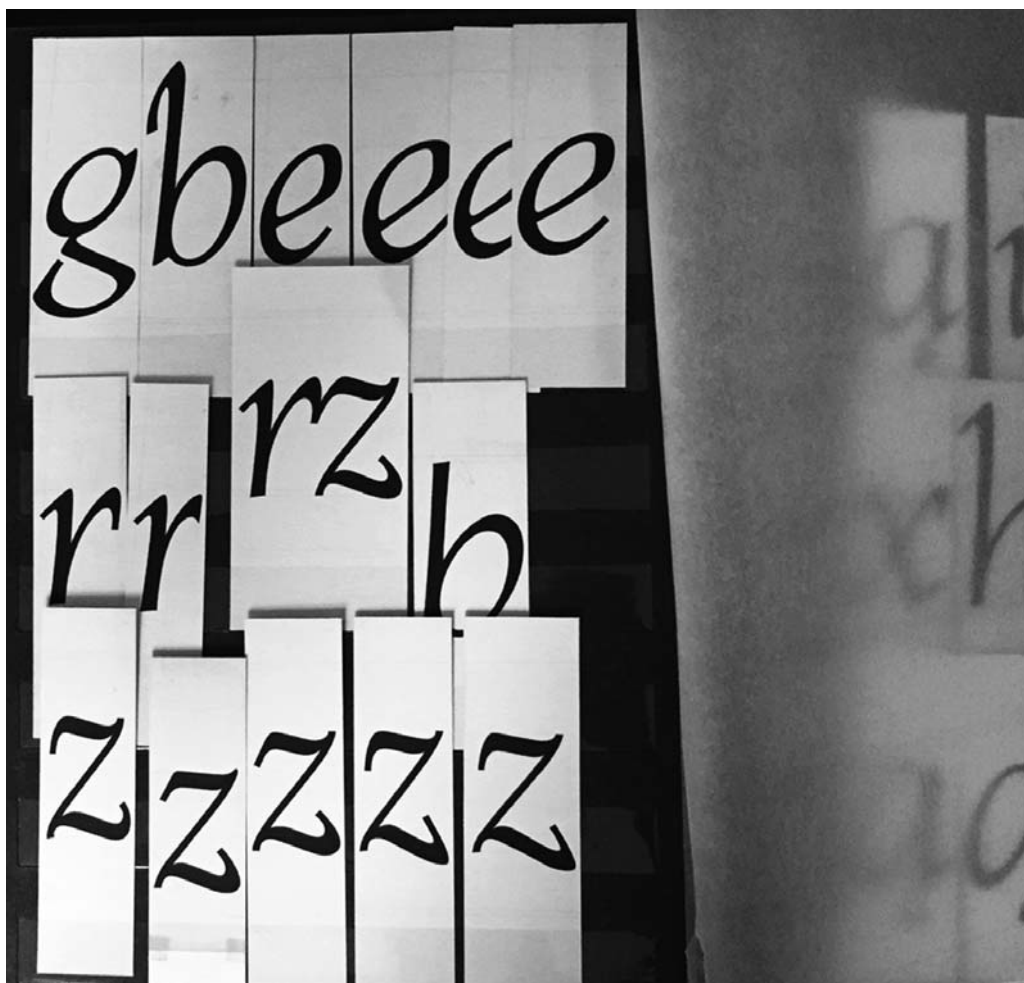 gbeeee
rz
rrb
zzzzz